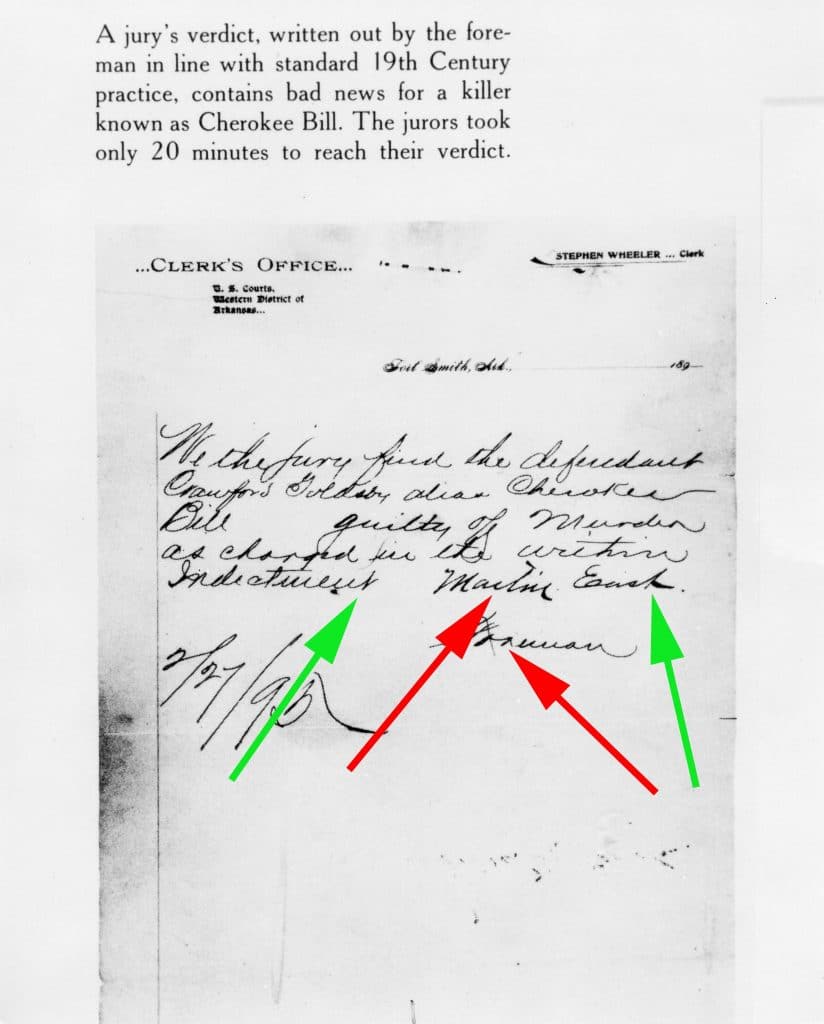 A jury's verdict, written out by the fore-
man in line with standard 19th Century
practice, contains bad news for a killer
known as Cherokee Bill. The jurors took
only 20 minutes to reach their verdict.
...CLERK'S OFFICE...
STEPHEN WHEELER ... Clerk
U. S. Courts,
Western District of
Arkansas...
Fort Smith, Ark., 189
We the jury find the defendant
Crawford Goldsby alias Cherokee
Bill guilty of Murder
as charged in the within
Indictment Martin East.
Foreman
2/27/95